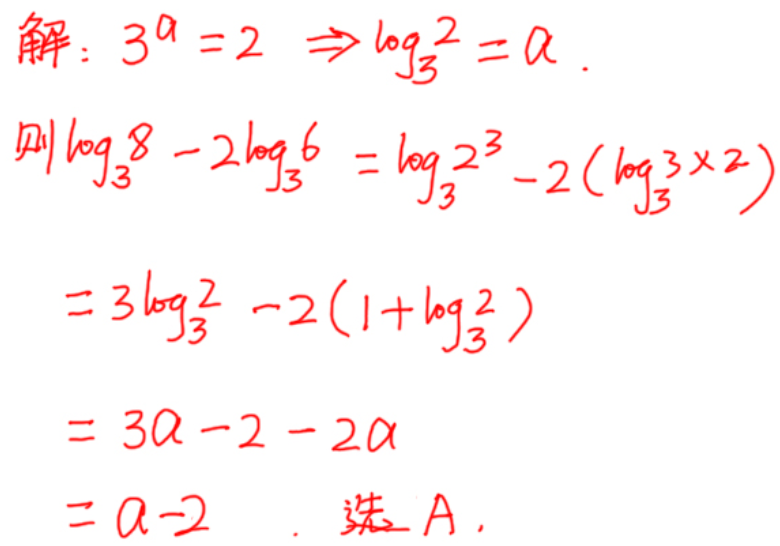 解: 3^a = 2 ⇒ log_3 2 = a .
则 log_3 8 - 2log_3 6 = log_3 2^3 - 2(log_3 3×2)
= 3log_3 2 - 2(1+log_3 2)
= 3a - 2 - 2a
= a-2 . 选 A .